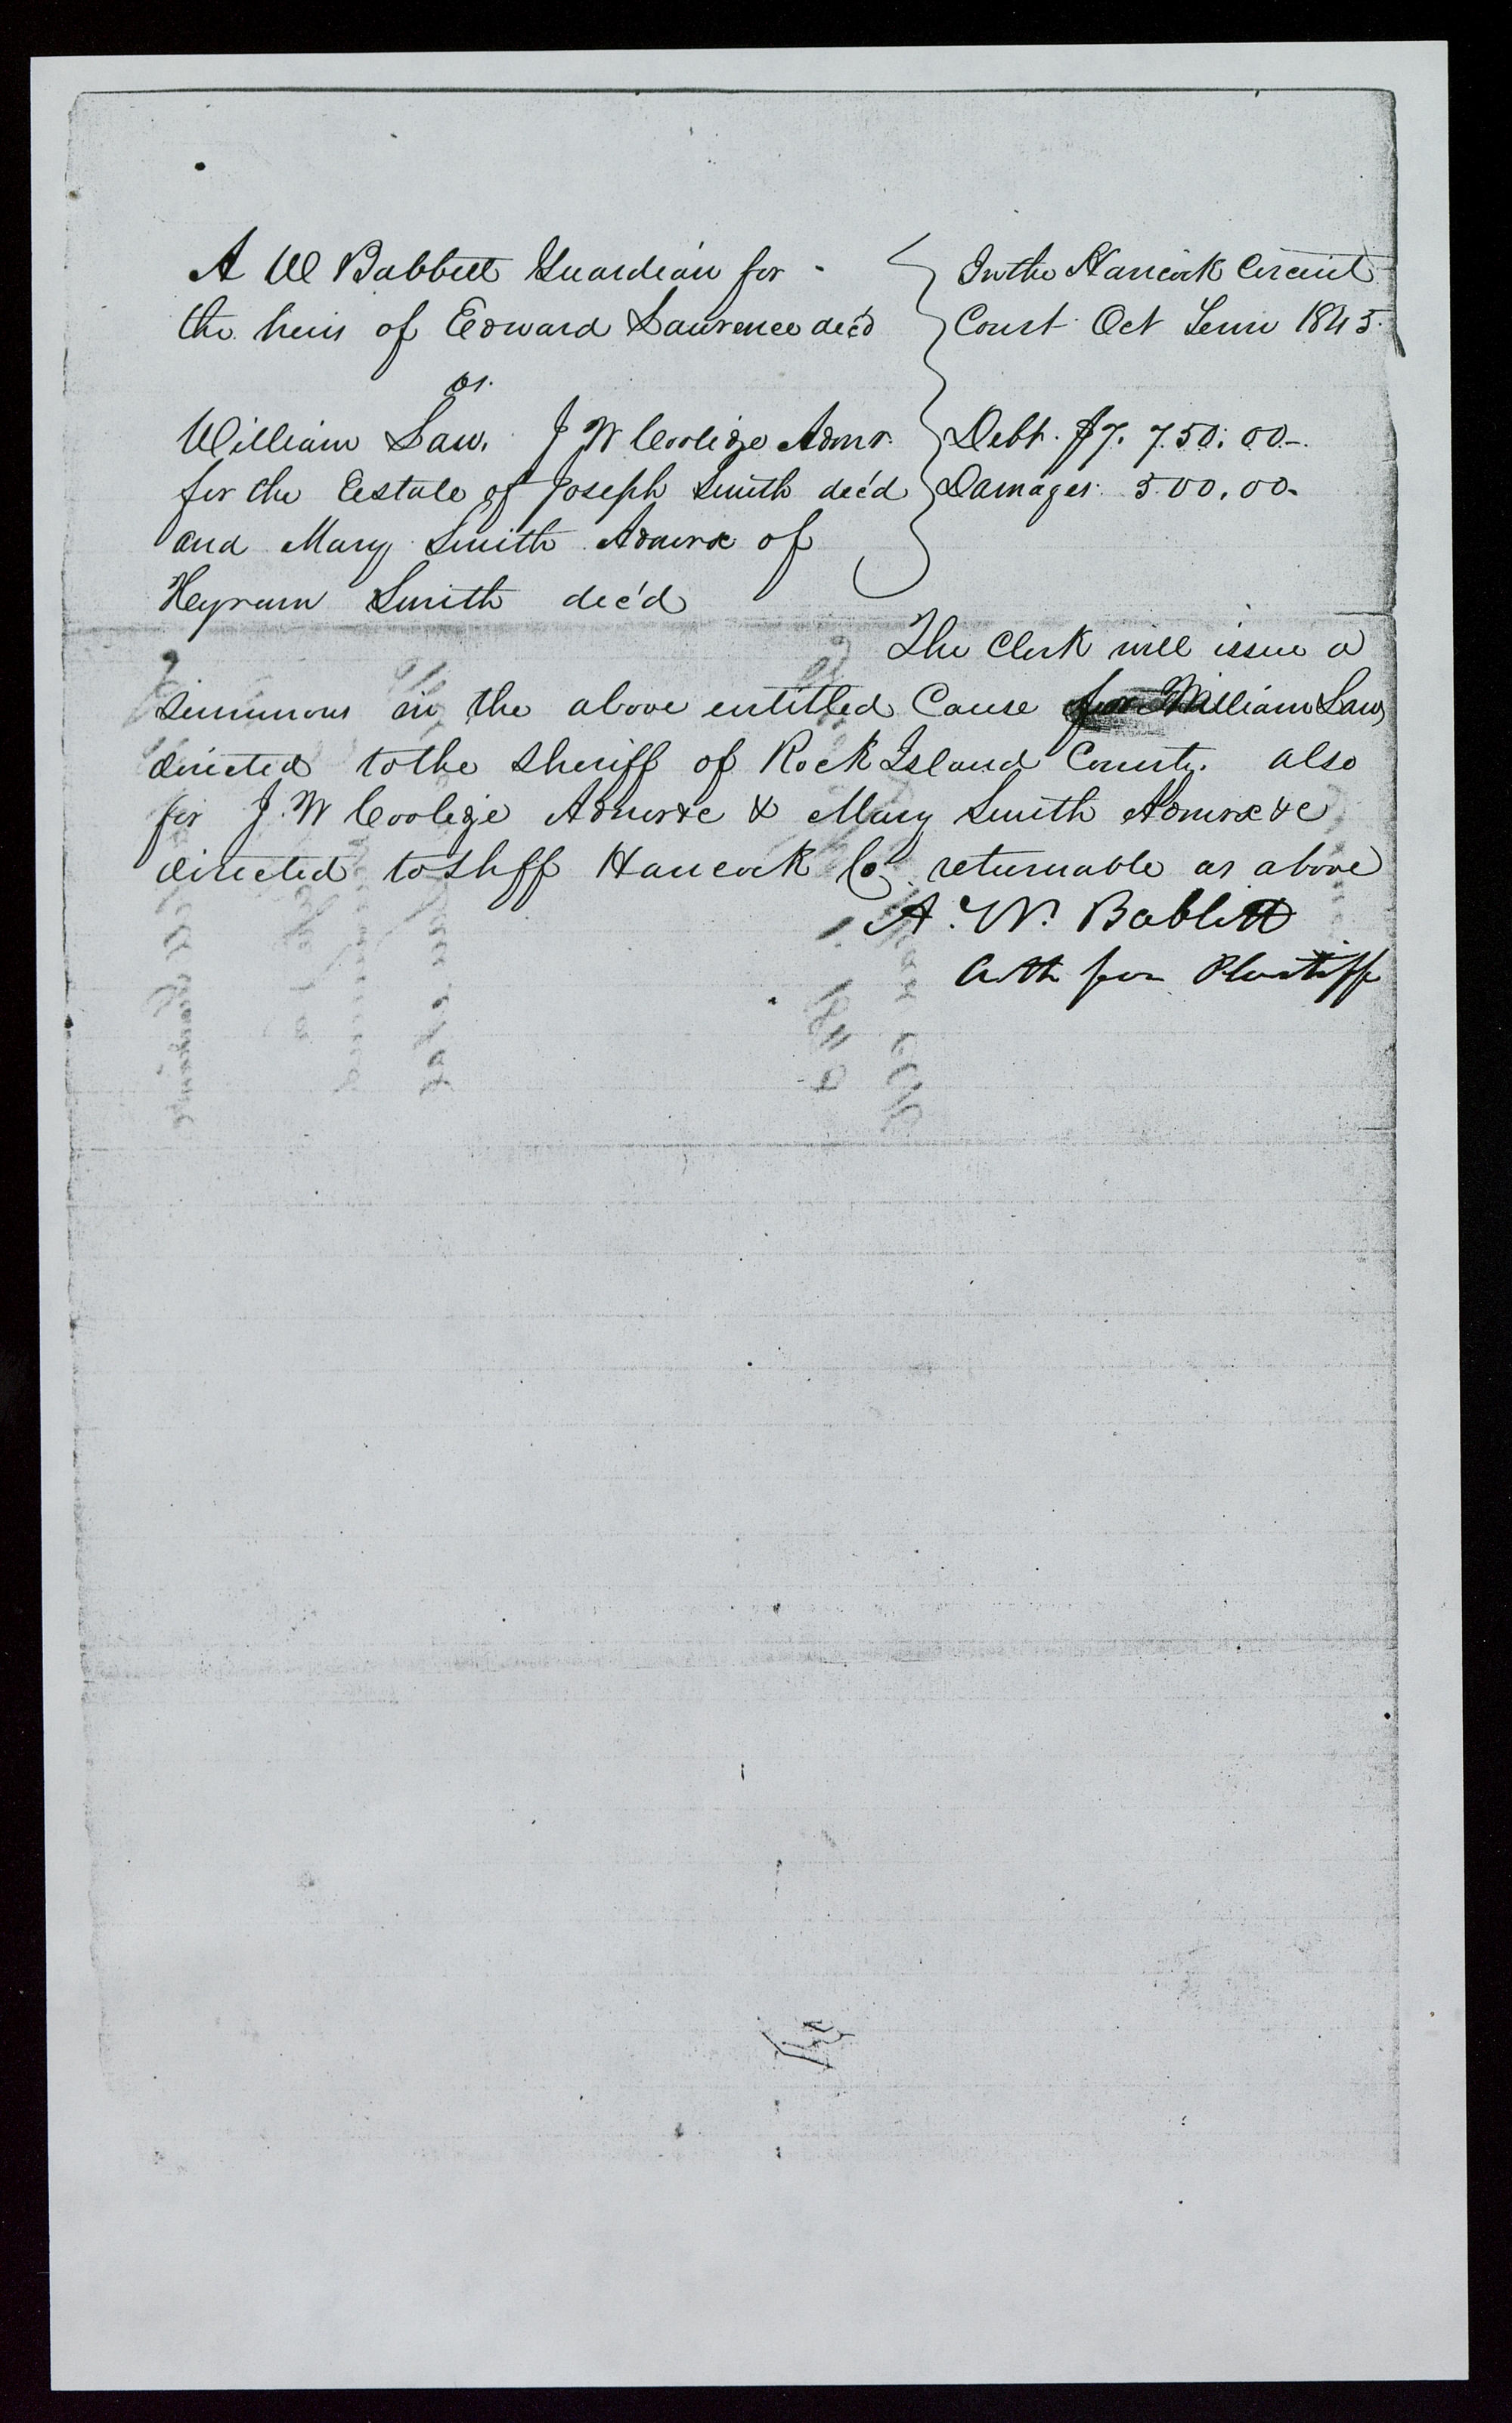 A W Babbitt Guardian for
the heirs of Edward Lawrence dec'd
vs.
William Law. J W Coolidge Admr.
for the Eestate of Joseph Smith dec'd
and Mary Smith Admrx of
Heyrum Smith dec'd
In the Hancock Circuit
Court Oct Term 1845.
Debt. $7.750.00-.
Damages. 500.00-
The Clerk will issue a
summons in the above entitled Cause for William Law
directed to the Sheriff of Rock Island County. also
for J. W Coolige Admr &c & Mary Smith Admrx &c
directed to Shff Hancock Co. returnable as above
A. W. Babbitt
Att for Plaintiff